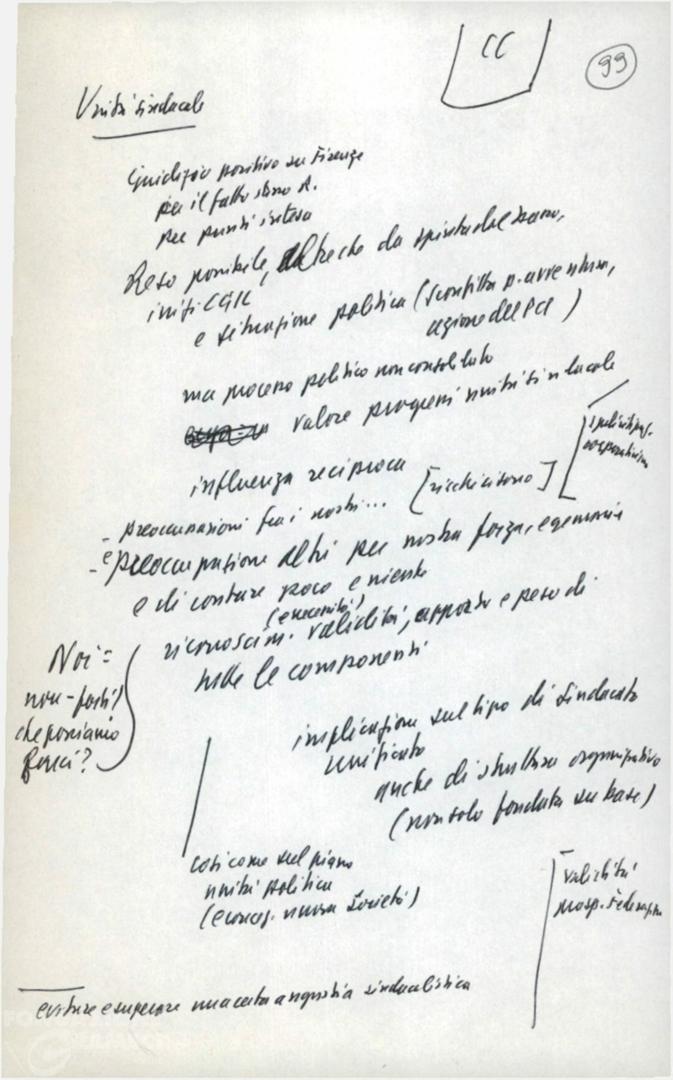 CC
99
Unità sindacale
Giudizio positivo su Firenze
per il fatto stesso
per punti intesa
Reso possibile, oltreche da spinta del
CGIL
e situazione politica (sconfitta p. avventura,
azione del PCI)
ma processo politico non consolidato
valore progressi unità sindacale
influenza reciproca
[ricchi
- preoccupazioni fra i nostri...
- e preoccupazione altri per nostra forza, egemonia
e di contare poco e niente
(e necessità)
riconoscim. validità, apporto e peso di
tutte le componenti
Noi =
che possiamo
farci?
implicazione sul tipo di sindacato
unificato
anche di struttura organizzativa
(non solo fondata su base)
così come sul piano
unità politica
(e concez. nuova società)
validità
prosp.
evitare e superare una certa angustia sindacalistica